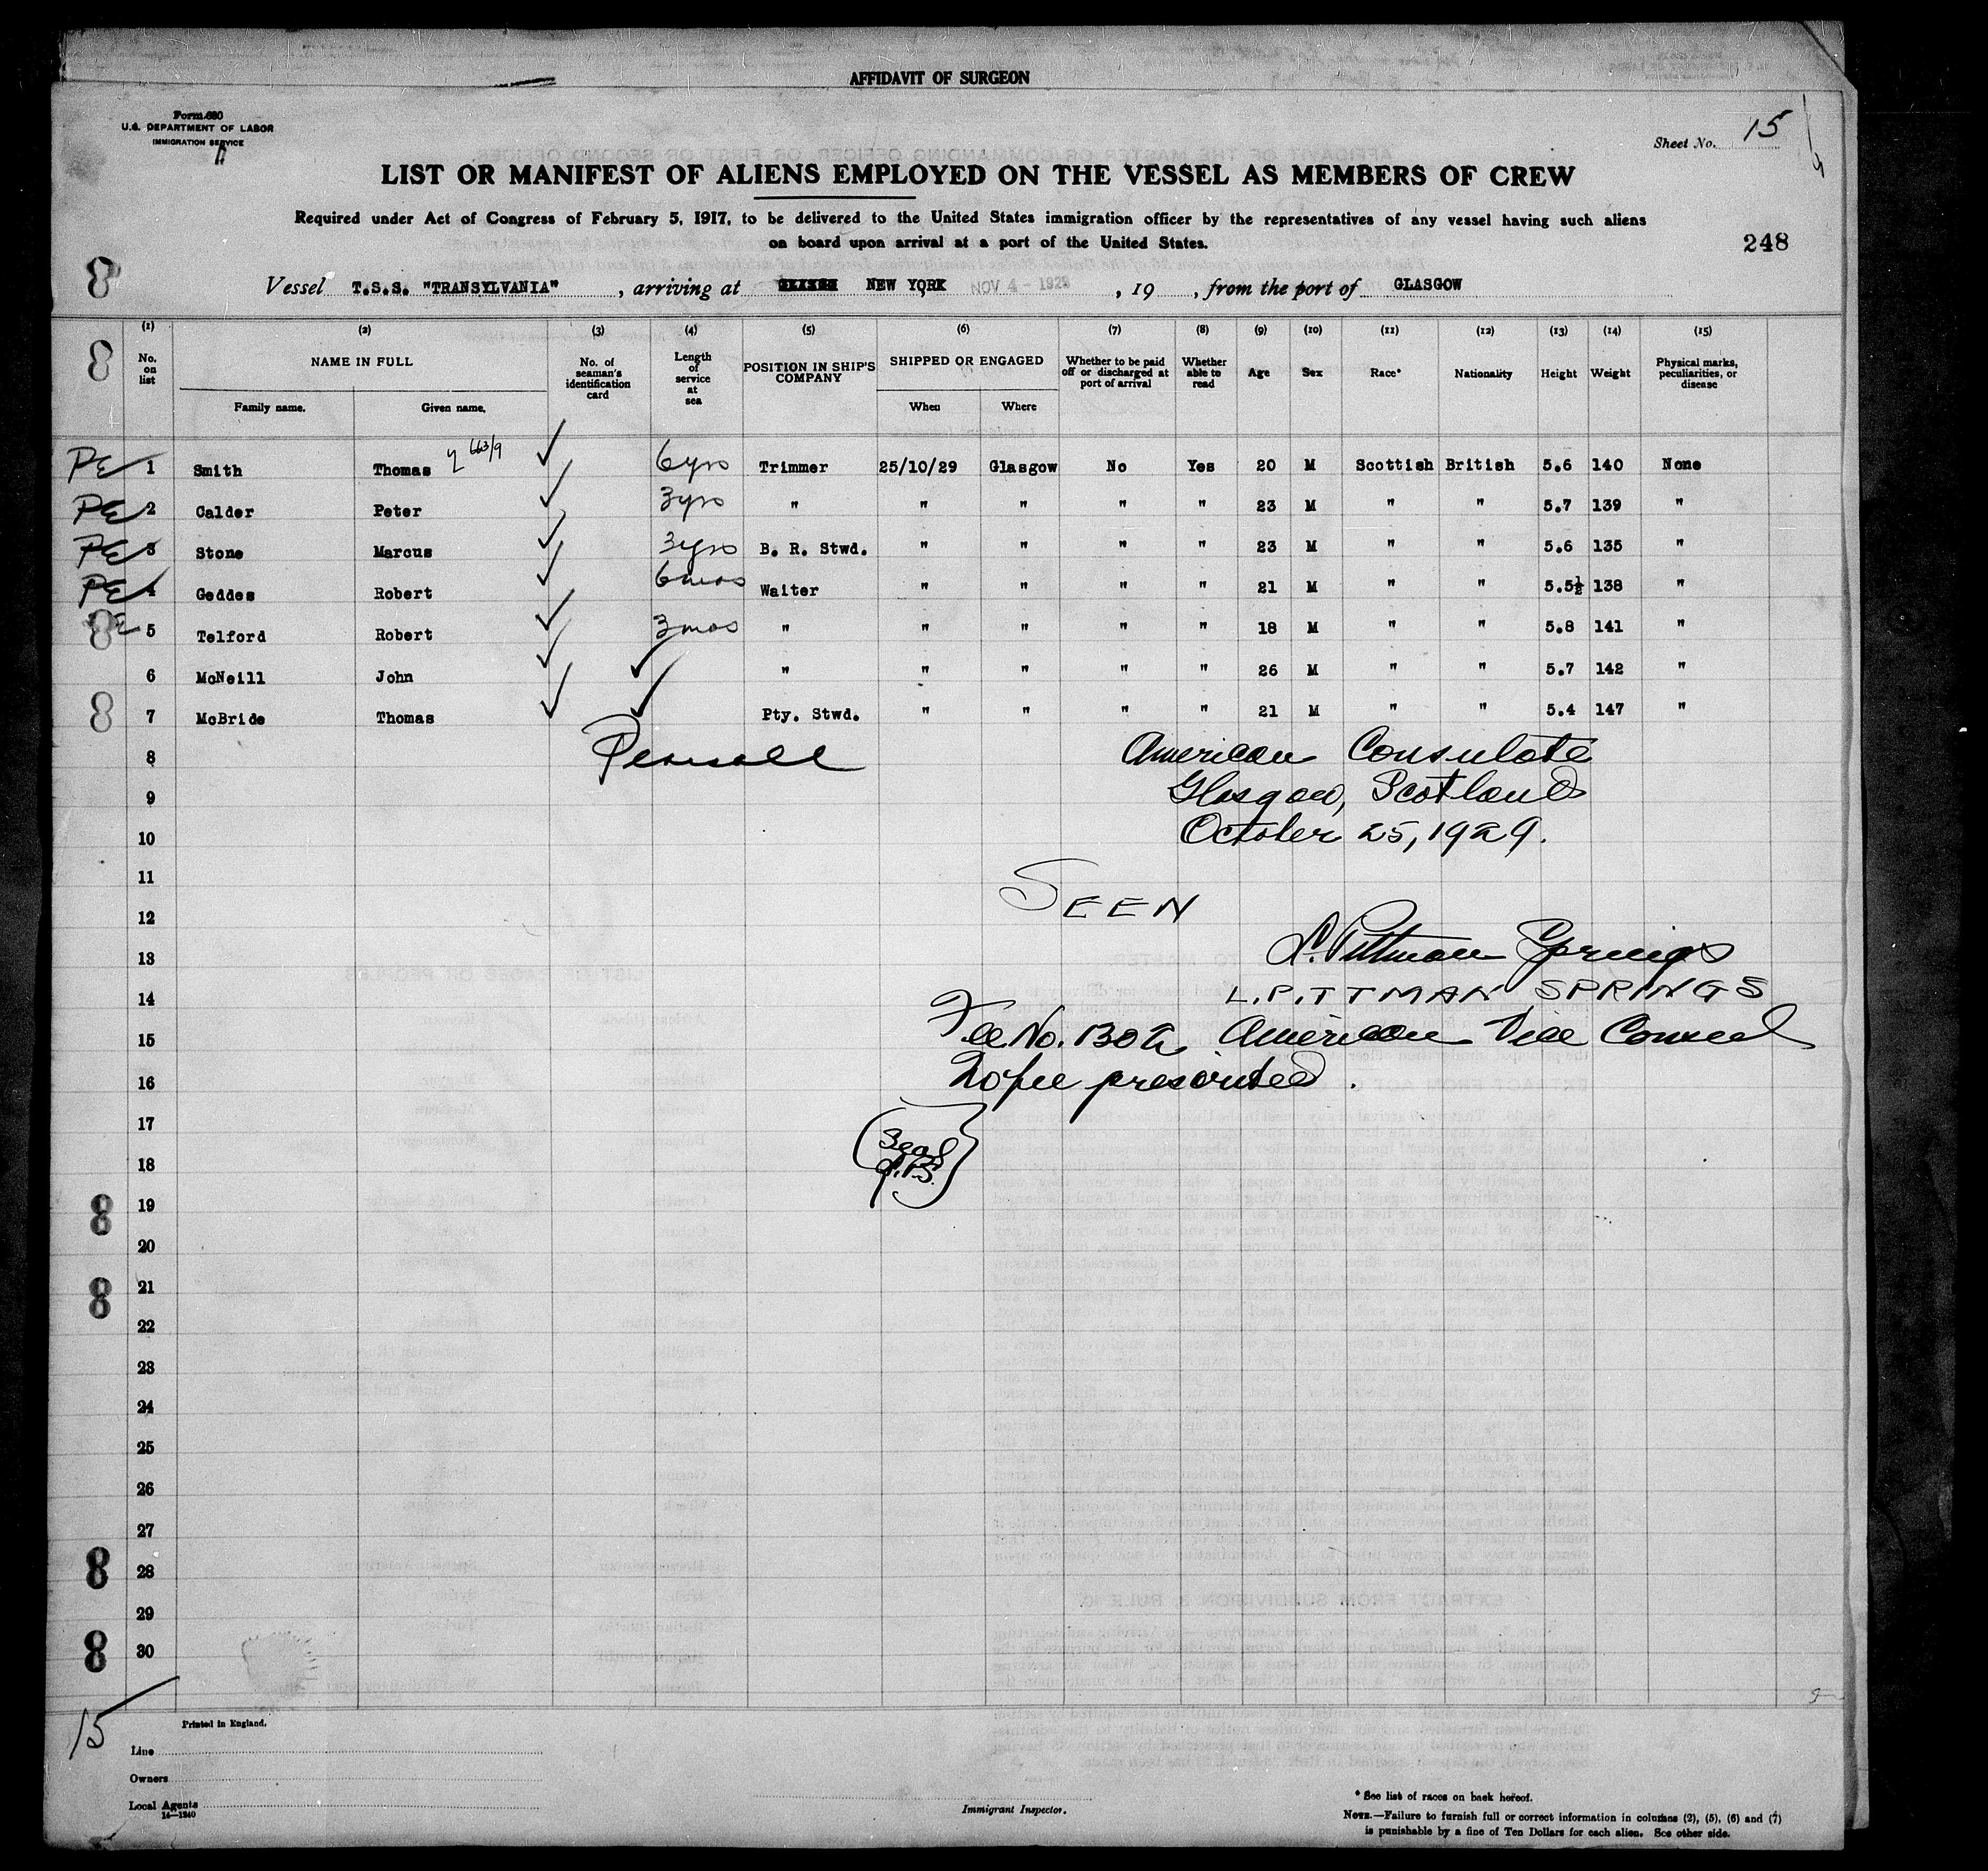 AFFIDAVIT OF SURGEON
Form 680
U.S. DEPARTMENT OF LABOR
IMMIGRATION SERVICE
Sheet No. 15
LIST OR MANIFEST OF ALIENS EMPLOYED ON THE VESSEL AS MEMBERS OF CREW
Required under Act of Congress of February 5, 1917, to be delivered to the United States immigration officer by the representatives of any vessel having such aliens
on board upon arrival at a port of the United States.
248
8
Vessel T.S.S. "TRANSYLVANIA", arriving at NEW YORK NOV 4 - 1929, 19 , from the port of GLASGOW
(1) (2) (3) (4) (5) (6) (7) (8) (9) (10) (11) (12) (13) (14) (15)
8
No. on list NAME IN FULL No. of seaman's identification card Length of service at sea POSITION IN SHIP'S COMPANY SHIPPED OR ENGAGED Whether to be paid off or discharged at port of arrival Whether able to read Age Sex Race* Nationality Height Weight Physical marks, peculiarities, or disease
Family name. Given name. When Where
PE 1 Smith Thomas 663/9 6yrs Trimmer 25/10/29 Glasgow No Yes 20 M Scottish British 5.6 140 None
PE 2 Calder Peter 3yrs " " " " " 23 M " " 5.7 139 "
PE 3 Stone Marcus 3yrs B. R. Stwd. " " " " 23 M " " 5.6 135 "
PE 4 Geddes Robert 6mos Waiter " " " " 21 M " " 5.5½ 138 "
8 5 Telford Robert 3mos " " " " " 18 M " " 5.8 141 "
6 McNeill John " " " " " 26 M " " 5.7 142 "
8 7 McBride Thomas Pty. Stwd. " " " " 21 M " " 5.4 147 "
8 American Consulate
9 Glasgow, Scotland
10 October 25, 1929.
11
12 SEEN
13 L. Pittman Springs
14 L. PITTMAN SPRINGS
15 Fee No. 1302 American Vice Consul
16 No fee prescribed.
17
Seal
18 L.P.S.
8 19
20
8 21
22
23
24
25
26
27
8 28
29
8 30
15
Printed in England.
Line
Owners
Local Agents
14—1240
Immigrant Inspector.
* See list of races on back hereof.
NOTE.—Failure to furnish full or correct information in columns (2), (5), (6) and (7)
is punishable by a fine of Ten Dollars for each alien. See other side.